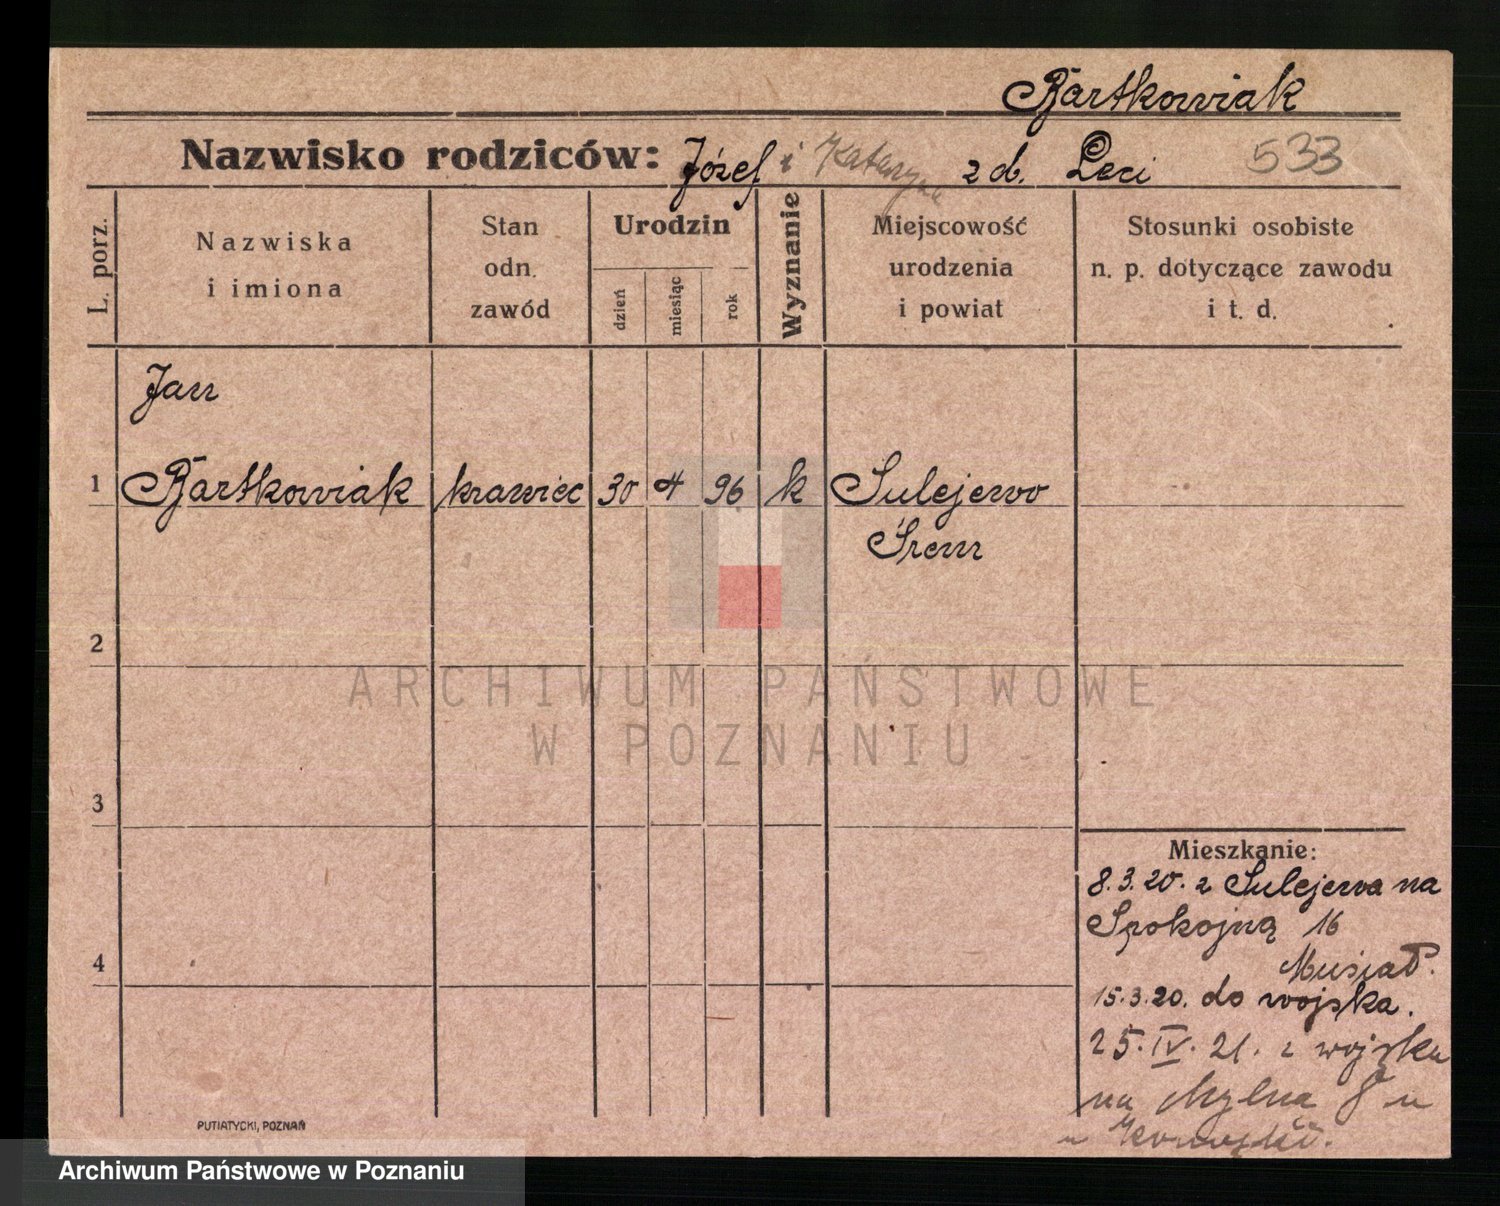 Bartkowiak
Nazwisko rodziców: Józef i Katarzyna z d. Leci 533
L. porz.
Nazwiska
i imiona
Stan
odn.
zawód
Urodzin
dzień
miesiąc
rok
Wyznanie
Miejscowość
urodzenia
i powiat
Stosunki osobiste
n. p. dotyczące zawodu
i t. d.
Jan
1 Bartkowiak krawiec 30 4 96 k Sulejewo
Śrem
2
ARCHIWUM PAŃSTWOWE
W POZNANIU
3
Mieszkanie:
8.3.20. z Sulejewa na
Spokojną 16
4
Musiał.
15.3.20. do wojska.
25.IV.21. z wojska
na Mylną 8 u
PUTIATYCKI, POZNAŃ
Archiwum Państwowe w Poznaniu